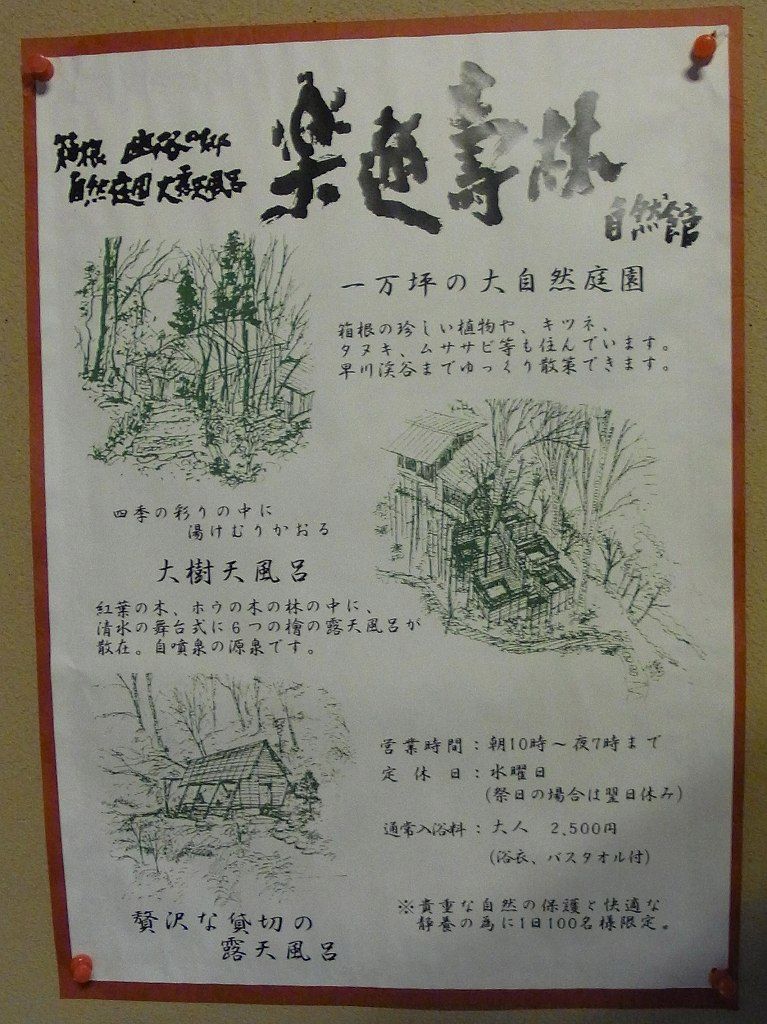 箱根
自然庭園大露天風呂
楽遊壽林
自然館
一万坪の大自然庭園
箱根の珍しい植物や、キツネ、
タヌキ、ムササビ等も住んでいます。
早川渓谷までゆっくり散策できます。
四季の彩りの中に
湯けむりかおる
大樹天風呂
紅葉の木、ホウの木の林の中に、
清水の舞台式に6つの檜の露天風呂が
散在。自噴泉の源泉です。
営業時間：朝10時～夜7時まで
定休日：水曜日
(祭日の場合は翌日休み)
通常入浴料：大人 2,500円
(浴衣、バスタオル付)
贅沢な貸切の
露天風呂
※貴重な自然の保護と快適な
静養の為に1日100名様限定。